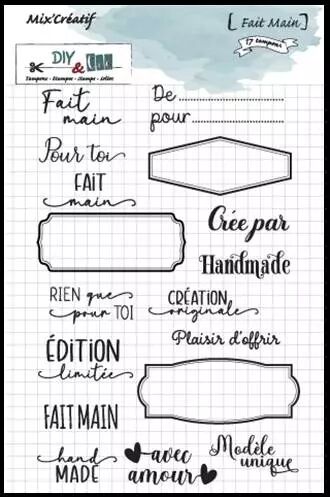 Mix'Créatif
[ Fait Main ]
17 tampons
DIY
&
Tampons - Stampex - Stamps - Sellos
Fait
main
De
pour
Pour toi
FAIT
main
Crée par
Handmade
RIEN que
pour TOI
CRÉATION
originale
Plaisir d'offrir
ÉDITION
limitée
FAIT MAIN
hand
MADE
avec
amour
Modèle
unique